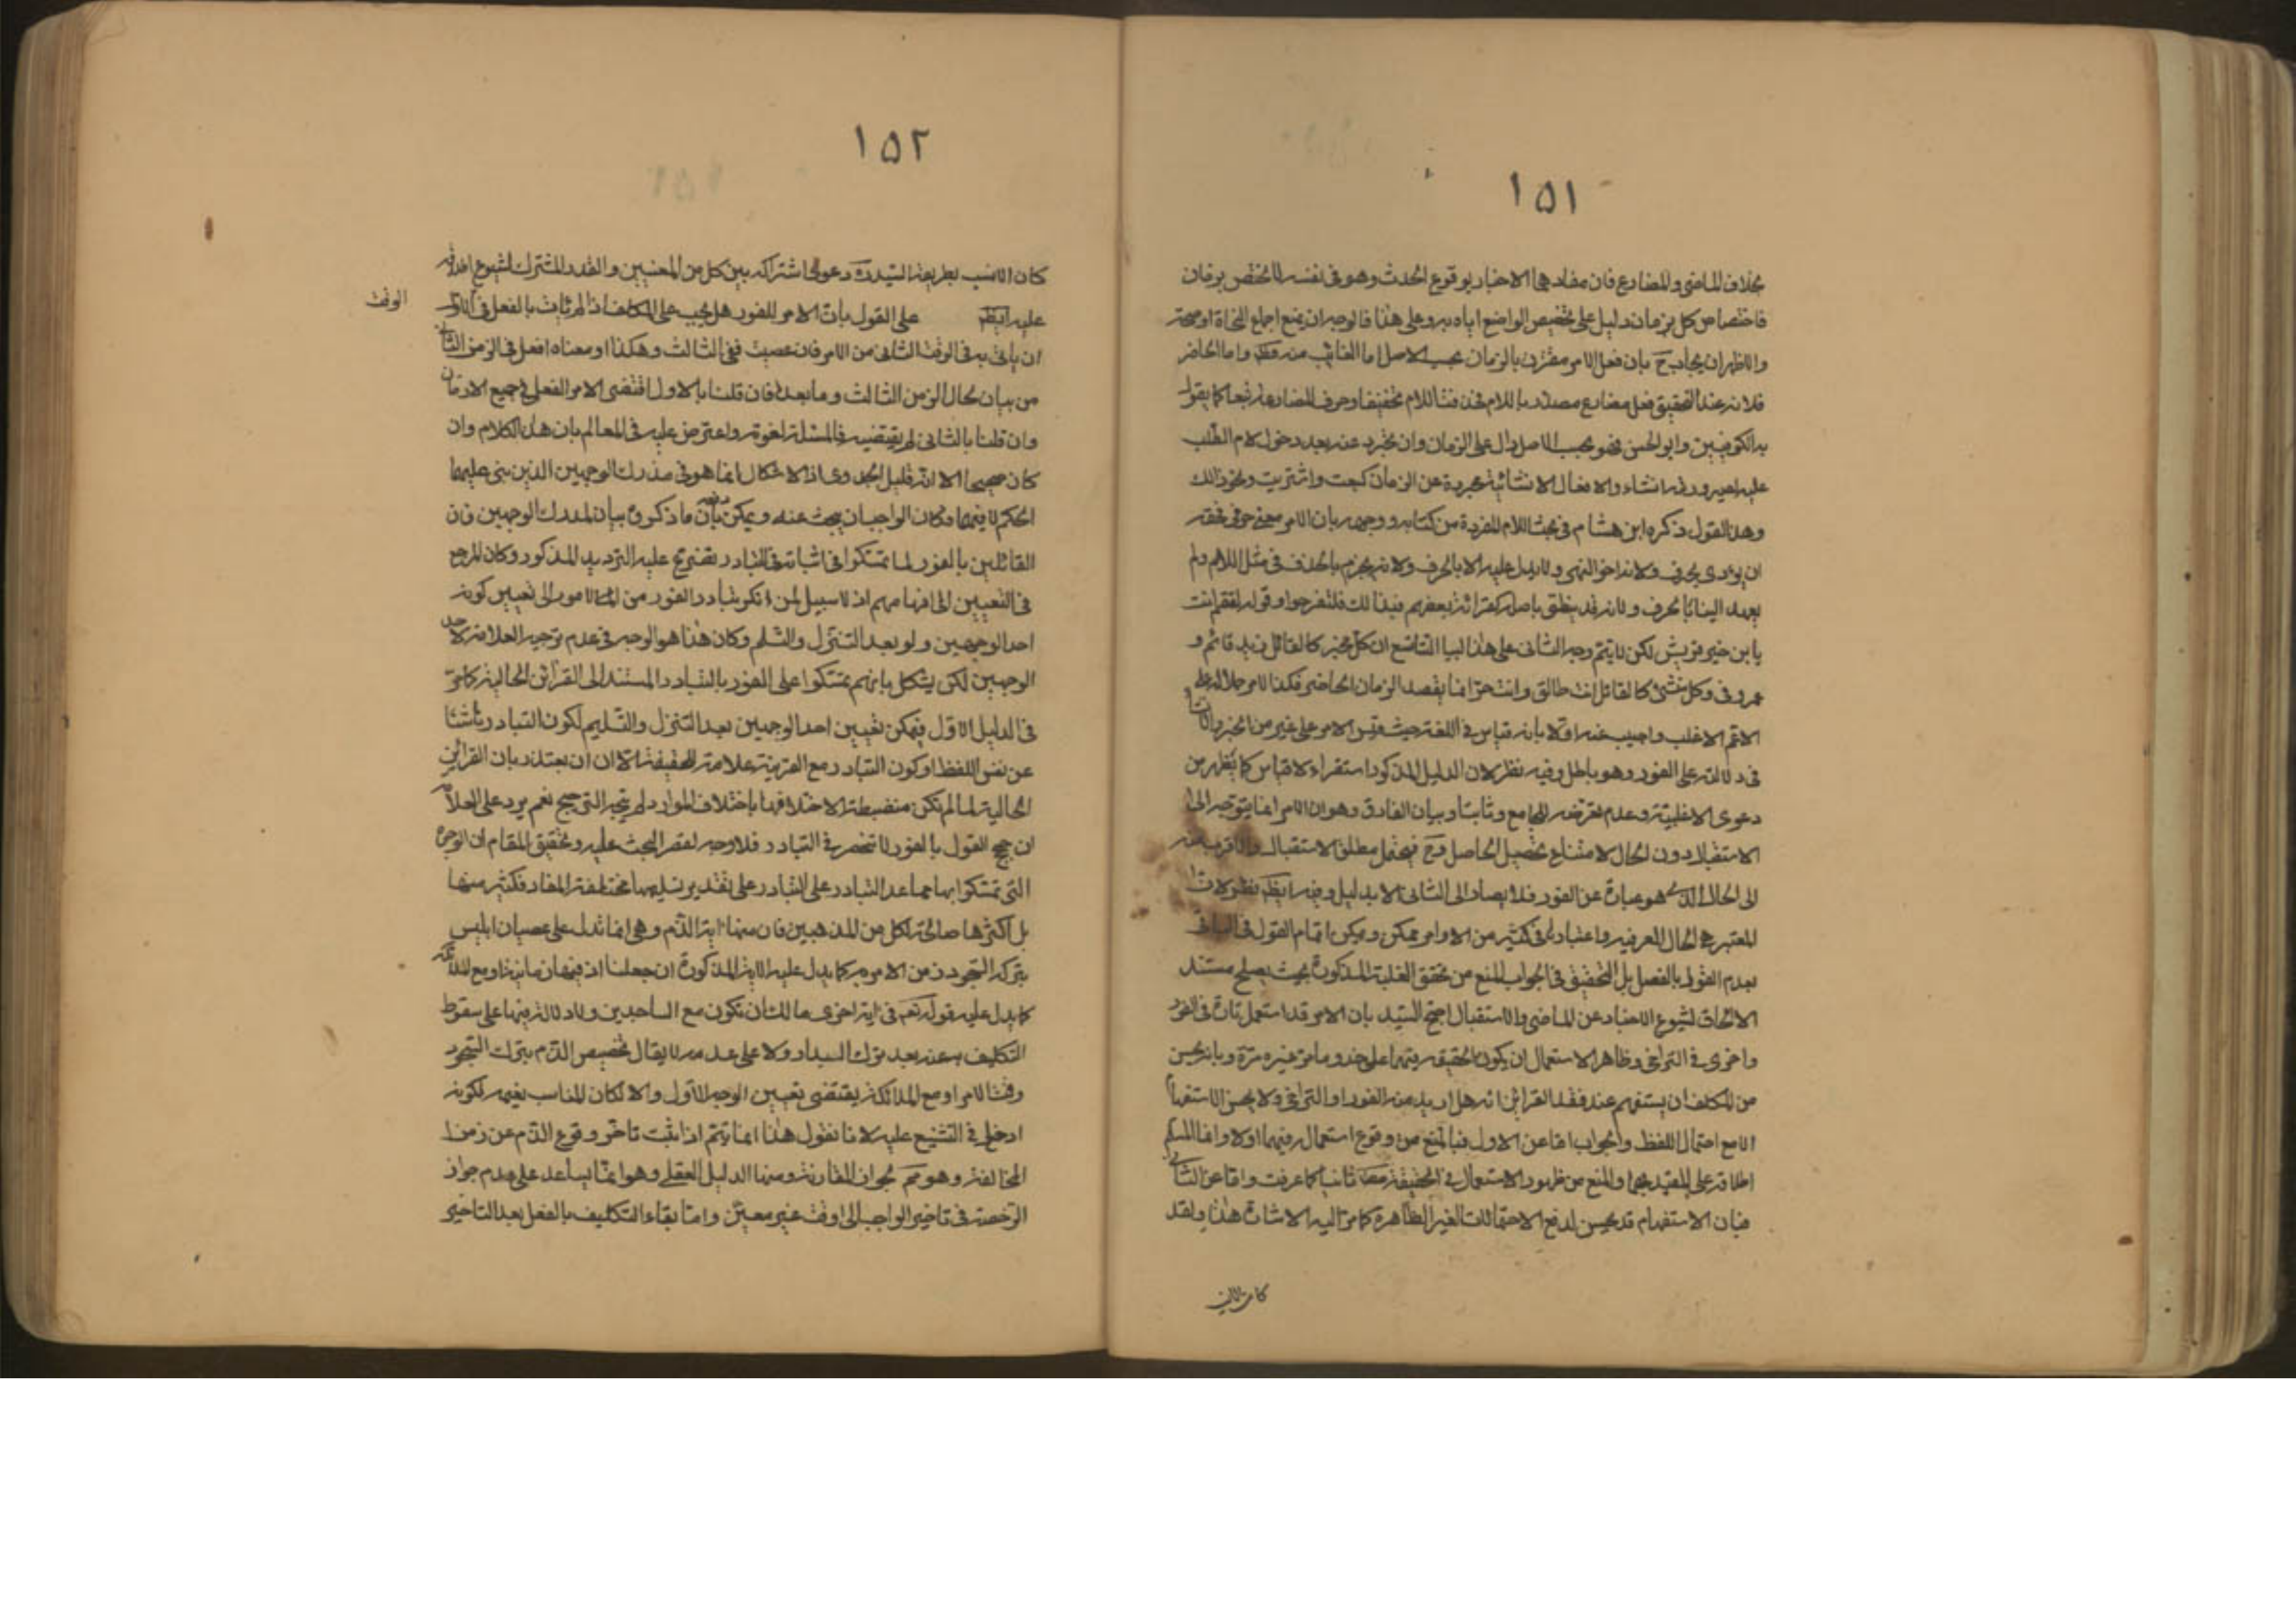 ١٥١
بخلاف الماضى والمضارع فان مفادهما الاخبار بوقوع الحدث وهو فى نفسه لا يختص بزمان
فاختصاص كل بزمان دليل على تخصيص الواضع اياه به وعلى هذا فالوجه ان يمنع اجماع النحاة او صحته
والاظهر ان يجاب ح بان فعل الامر مقترن بالزمان بحسب الاصل اما الغائب منه فظ واما الحاضر
فلانه عند التحقيق فعل مضارع مصدر باللام فحذفت اللام تخفيفا وحرف المضارعة تبعا كما يقول
به الكوفيين وابو الحسن فهو بحسب الاصل دال على الزمان وان تجرد عنه بعد دخول لام الطلب
عليه لصيرورته انشاء والافعال الانشائية مجردة عن الزمان كبعت واشتريت ونحو ذلك
وهذا القول ذكره ابن هشام فى بحث اللام المفردة من كتابه ووجهه بان الامر معنى حرفى فحقه
ان يؤدى بحرف ولانه اخو النهى ولا يدل عليه الا بالحرف ولانه يجزم بالحذف فى مثل اللاهم ولم
يعهد البناء بحرف ولانه قد ينطق باصله كقرائة بعضهم فبذلك فلتفرحوا وقوله لتقم انت
يا بن خير قريش لكن لا يتم وجه الثانى على هذا البيا التاسع ان كل مخبر كالقائل زيد قائم و
عمرو فى وكل منشئ كالقائل انت طالق وانت حر انما يقصد الزمان الحاضر فكذا الامر حملا له على
الاعم الاغلب واجيب عنه اولا بانه قياس فى اللغة حيث قيس الامر على غيره من الخبر والانشاء
فى دلالته على الفور وهو باطل وفيه نظر لان الدليل المذكور استقراء لا قياس كما يظهر من
دعوى الاغلبية وعدم تعرضه للجامع وثانيا وبيان الفارق وهو ان الامر انما يتوجه الى
الاستقبال دون الحال لامتناع تحصيل الحاصل فح فيحتمل مطلق الاستقبال والاقرب منه
الى الحال الذى هو عبارة عن الفور فلا يصار الى الثانى الا بدليل وفيه ايضا نظر لان
المعتبر هى الحال العرفية واعتباره فى كثير من الاوامر ممكن ويمكن اتمام القول فى الباقى
بعدم القول بالفصل بل التحقيق فى الجواب المنع من تحقق الغلبة المذكورة بحيث يصلح مستند
الالحاق لشيوع الاخبار عن الماضى والاستقبال احتج السيد بان الامر قد استعمل تارة فى الفور
واخرى فى التراخى وظاهر الاستعمال ان يكون حقيقة فيهما على حد وما مر غير مرة وبانه يحسن
من المكلف ان يستفهم عند فقد القرائن انه هل اريد منه الفور او التراخى ولا يحسن الاستفهام
الا مع احتمال اللفظ والجواب اما عن الاول فبالمنع من وقوع استعماله فيهما اولا وانما المسلم
اطلاقه على المقيد بهما والمنع من ظهور الاستعمال فى الحقيقة مطلقا ثانيا كما عرفت واما عن الثانى
فبان الاستفهام قد يحسن لدفع الاحتمالات الغير الظاهرة كما مر اليه الاشارة هذا ولقد
كان الانسب
١٥٢
كان الانسب بطريقة السيد دعوى اشتراكه بين كل من المعنيين والقدر المشترك لشيوع اطلاقه
عليه ايضا على القول بان الامر للفور هل يجب على المكلف اذا لم يات بالفعل فى اول
الوقت
ان ياتى به فى الوقت الثانى من الامر فان عصيت ففى الثالث وهكذا او معناه افعل فى الزمن الثانى
من بيان حال الزمن الثالث وما بعده فان قلنا بالاول اقتضى الامر الفعل فى جميع الازمان
وان قلنا بالثانى لم يقتضيه فالمسئلة لغوية واعترض عليه فى المعالم بان هذا الكلام وان
كان صحيحا الا انه قليل الجدوى اذ الاشكال انما هو فى مدرك الوجهين الذين بنى عليهما
الحكم لا فيهما فكان الواجب ان يبحث عنه ويمكن دفعه بان ما ذكروه بيان لمدرك الوجهين فان
القائلين بالفور لما تمسكوا فى اثباته بالتبادر يتفرع عليه الترديد المذكور وكان المرجع
فى التعيين الى افهامهم اذ لا سبيل لمن انكر تبادر الفور من الامر الى تعيين كونه
احد الوجهين ولو بعد التنزل والتسلم وكان هذا هو الوجه فى عدم توجيه العلامة لاحد
الوجهين لكن يشكل بانهم تمسكوا على الفور بالتبادر المستند الى القرائن الحالية كما مر
فى الدليل الاول فيمكن تعيين احد الوجهين بعد التنزل والتسليم لكون التبادر ناشئا
عن نفس اللفظ او كون التبادر مع القرينة علامة للحقيقة الا ان يعتذر بان القرائن
الحالية لما لم تكن منضبطة لاختلافها باختلاف الموارد لم يتجه الترجيح نعم يرد على العلامة
ان حجج القول بالفور لا تنحصر فى التبادر فلا وجه لقصر البحث عليه وتحقيق المقام ان الوجوه
التى تمسكوا بها مما عدا التبادر على التبادر على تقدير تسليمها مختلفة المفاد فكثير منها
بل اكثرها صالحة لكل من المذهبين فان منها اية الذم وهى انما تدل على عصيان ابليس
بترك السجود زمن الامر به كما يدل عليه الاية المذكورة ان جعلنا اذ فيها زمانية او مع الملائكة
كما يدل عليه قوله تعم فى اية اخرى ما لك ان تكون مع الساجدين ولا دلالة فيها على سقوط
التكليف عنه بعد ترك البدار ولا على عدمه لا يقال تخصيص الذم بترك السجود
وقت الامر او مع الملائكة يقتضى تعيين الوجه الاول والا لكان المناسب تعميمه لكونه
ادخل فى التشنيع عليه لانا نقول هذا انما يتم اذا ثبت تاخر وقوع الذم عن زمن
المخالفة وهو مم لجواز المقارنة ومنها الدليل العقلى وهو انما يساعد على عدم جواز
الرخصة فى تاخير الواجب الى وقت غير معين واما بقاء التكليف بالفعل بعد التاخير